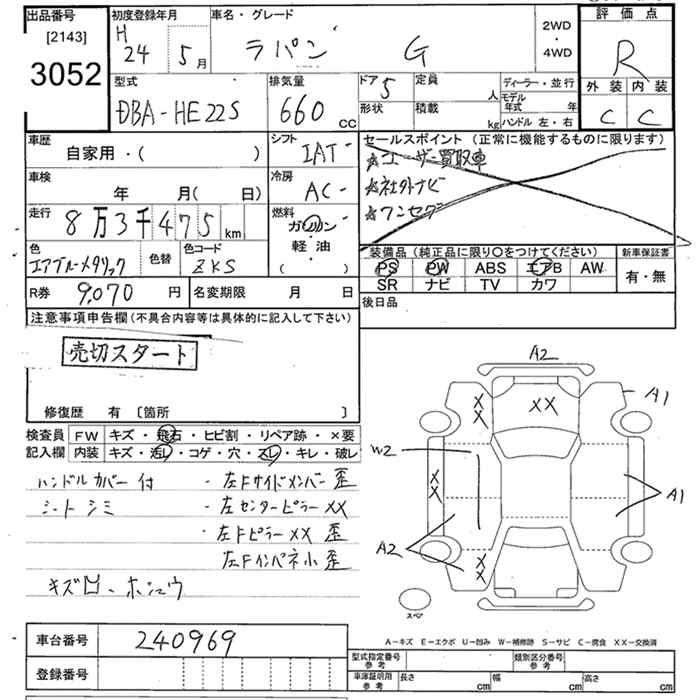 出品番号
[2143]
3052
初度登録年月
H
24 5月
車名・グレード
ラパン G
2WD
・
4WD
評価点
R
外装 内装
C C
型式
DBA-HE22S
排気量
660 cc
ドア 5
形状
定員 人
積載 kg
ディーラー・並行
モデル
年式 年
ハンドル 左・右
車歴
自家用・( )
シフト
IAT
車検
年 月( 日)
冷房
AC
走行
8万3千475 km
燃料
ガソリン
・
軽油
・
( )
色
エアブルーメタリック
色替
色コード
ZKS
R券 9,070 円
名変期限 月 日
セールスポイント (正常に機能するものに限ります)
☆ユーザー買取車
☆社外ナビ
☆ワンセグ
装備品 (純正品に限り〇をつけてください)
PS PW ABS エアB AW
SR ナビ TV カワ
新車保証書
有・無
後日品
注意事項申告欄(不具合内容等は具体的に記入して下さい)
売切スタート
修復歴 有 [箇所 ]
検査員
記入欄
FW キズ・飛石・ヒビ割・リペア跡・×要
内装 キズ・汚レ・コゲ・穴・スレ・キレ・破レ
ハンドルカバー付
シートシミ
・左Fサイドメンバー歪
・左センターピラーXX
・左FピラーXX歪
左Fインパネ小歪
キズ凹・ホシュウ
A2
XX
XX
A1
W2
XX
A1
A2
XX
スペア
A-キズ E-エクボ U-凹み W-補修跡 S-サビ C-腐食 XX-交換済
車台番号 240969
登録番号
型式指定番号
参考
類別区分番号
参考
車庫証明用
参考
長さ cm
幅 cm
高さ cm